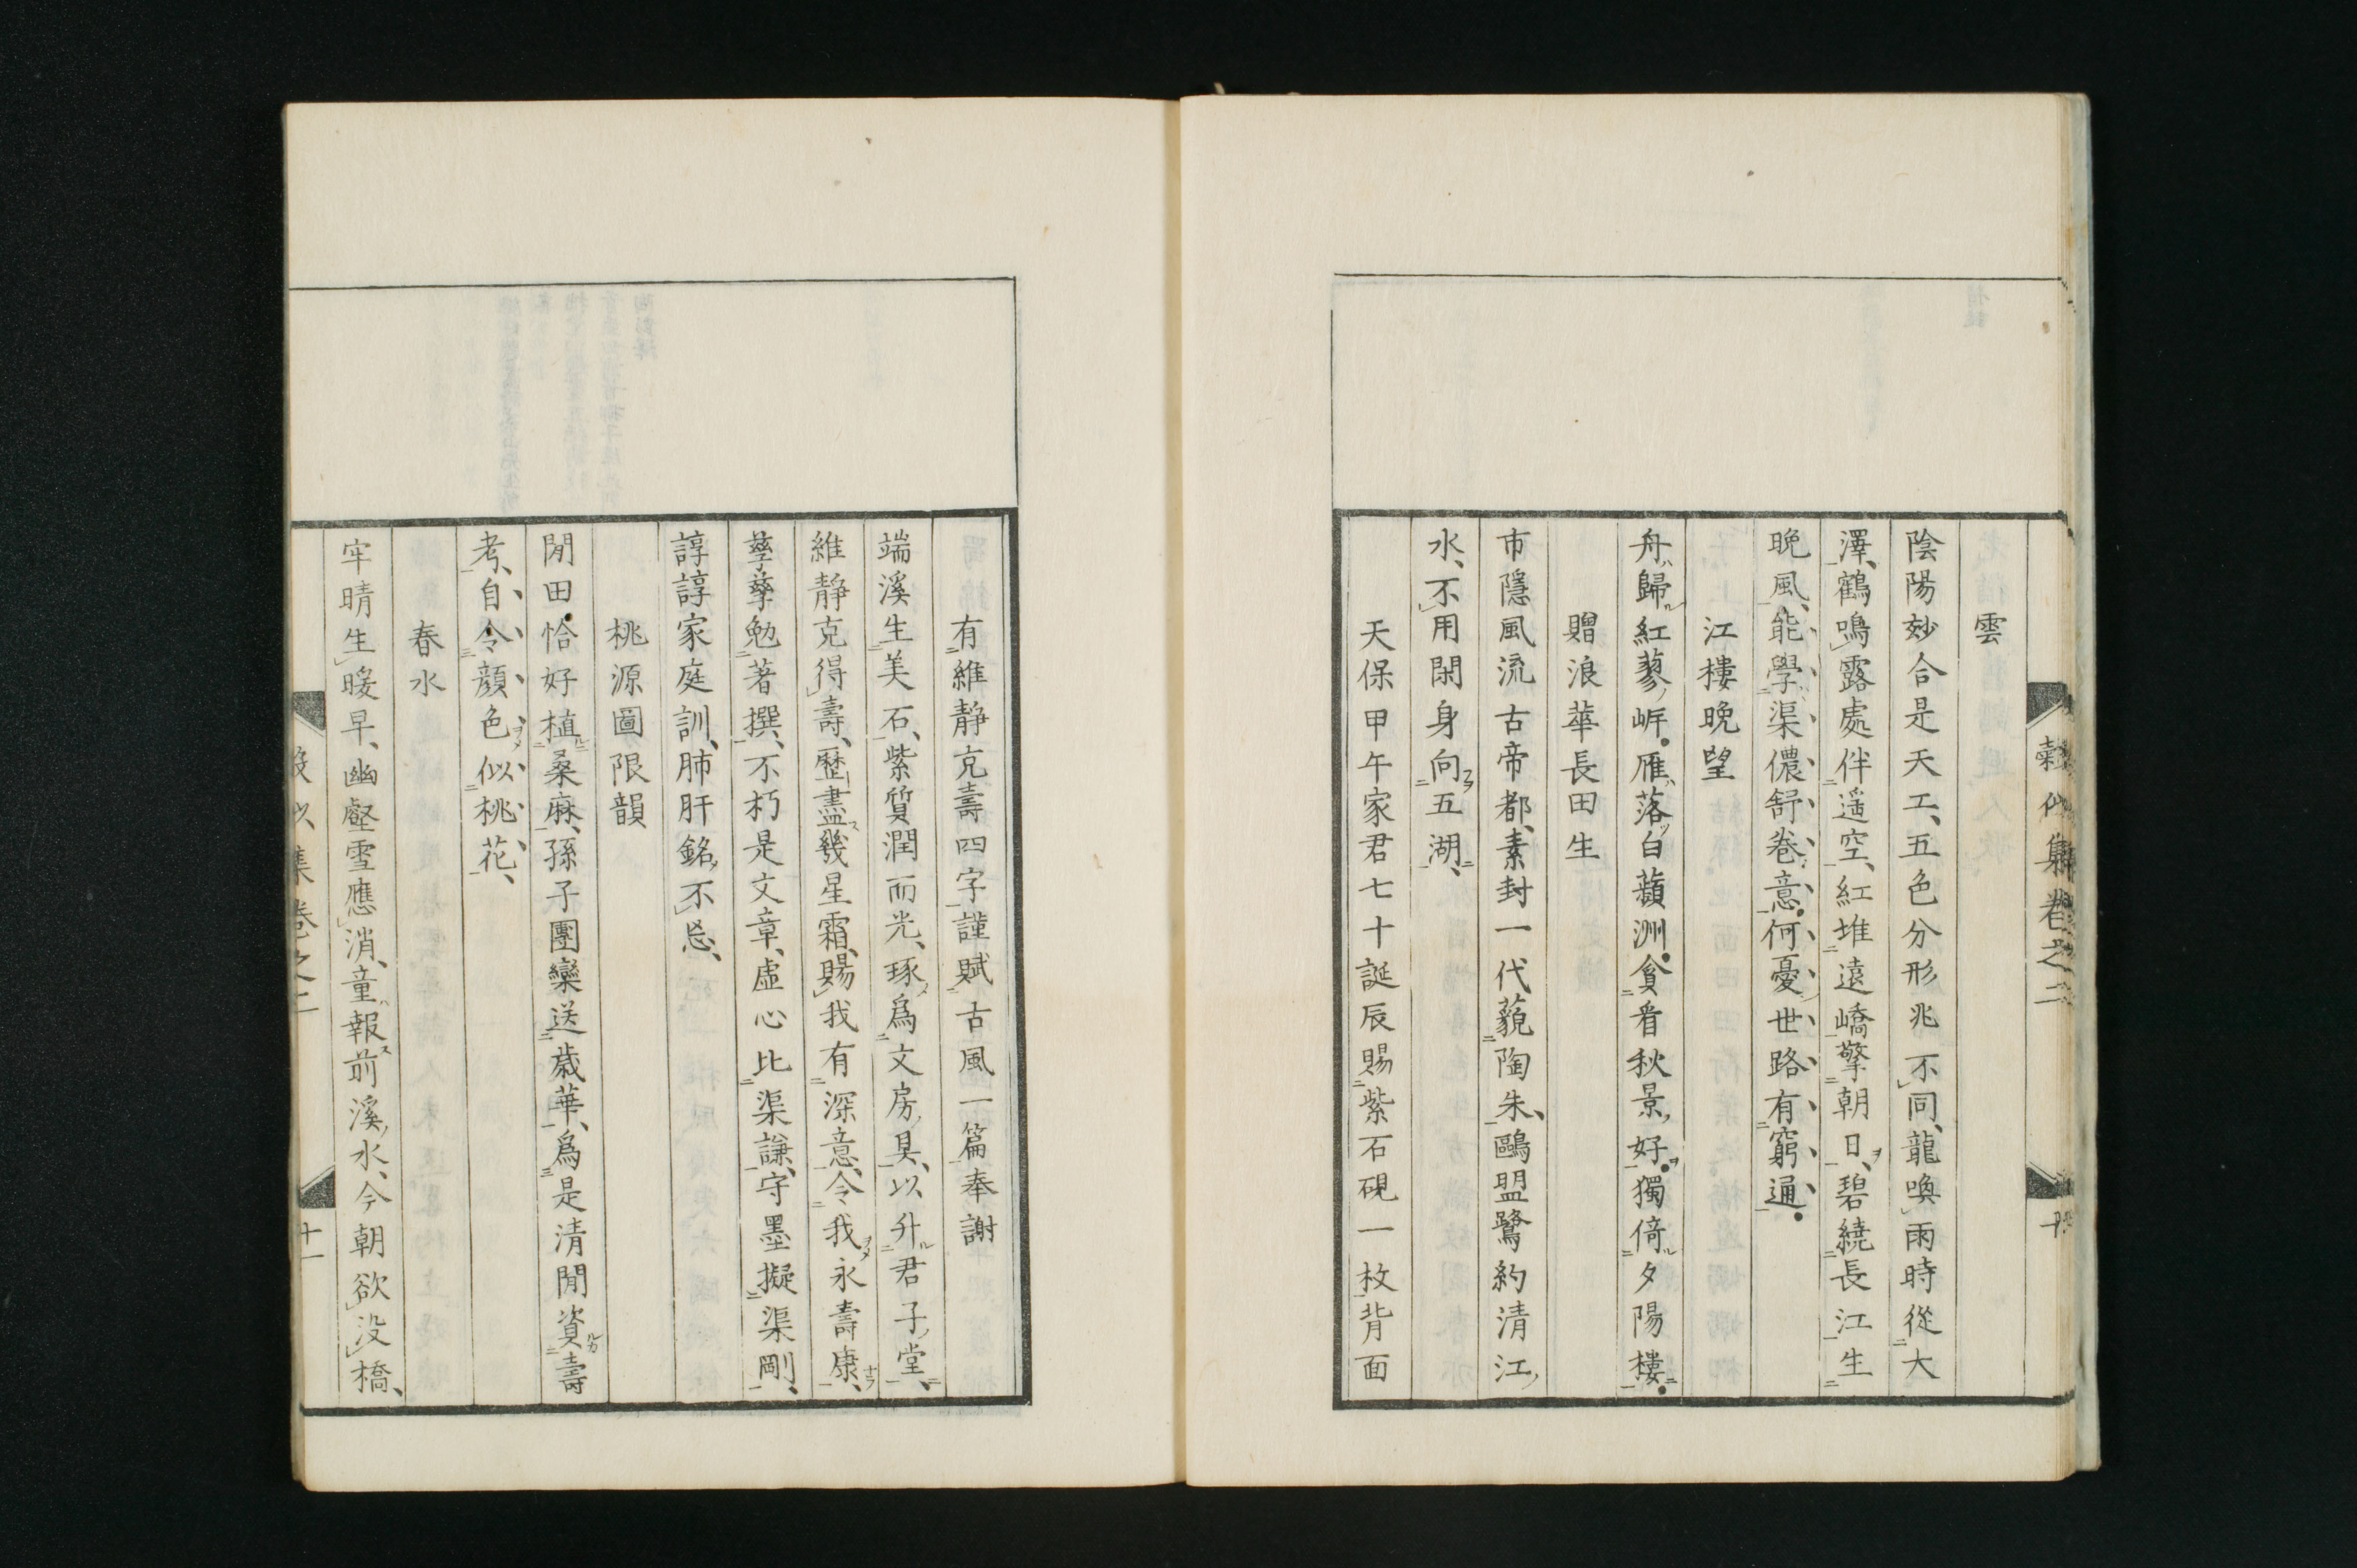 雲
陰陽妙合是天工、五色分形兆不同、龍喚雨時從大
澤、鶴鳴露處伴遥空、紅堆遠嶠擎朝日、碧繞長江生
晩風、能學渠儂舒卷意、何憂世路有窮通。
江樓晩望
舟歸紅蓼岸。雁落白蘋洲。貪看秋景好。獨倚夕陽樓。
贈浪華長田生
市隱風流古帝都、素封一代藐陶朱、鷗盟鷺約清江
水、不用閑身向五湖、
天保甲午家君七十誕辰賜紫石硯一枚背面
有維靜克壽四字謹賦古風一篇奉謝
端溪生美石、紫質潤而光、琢爲文房具、以升君子堂、
維靜克得壽、歷盡幾星霜、賜我有深意、令我永壽康、
孳孳勉著撰、不朽是文章、虚心比渠謙、守墨擬渠剛、
諄諄家庭訓、肺肝銘不忘、
桃源圖限韻
閒田恰好植桑麻、孫子團欒送歳華、爲是清閒資壽
考、自令顔色似桃花、
春水
牢晴生暖早、幽壑雪應消、童報前溪水、今朝欲没橋、
卷之二
十一